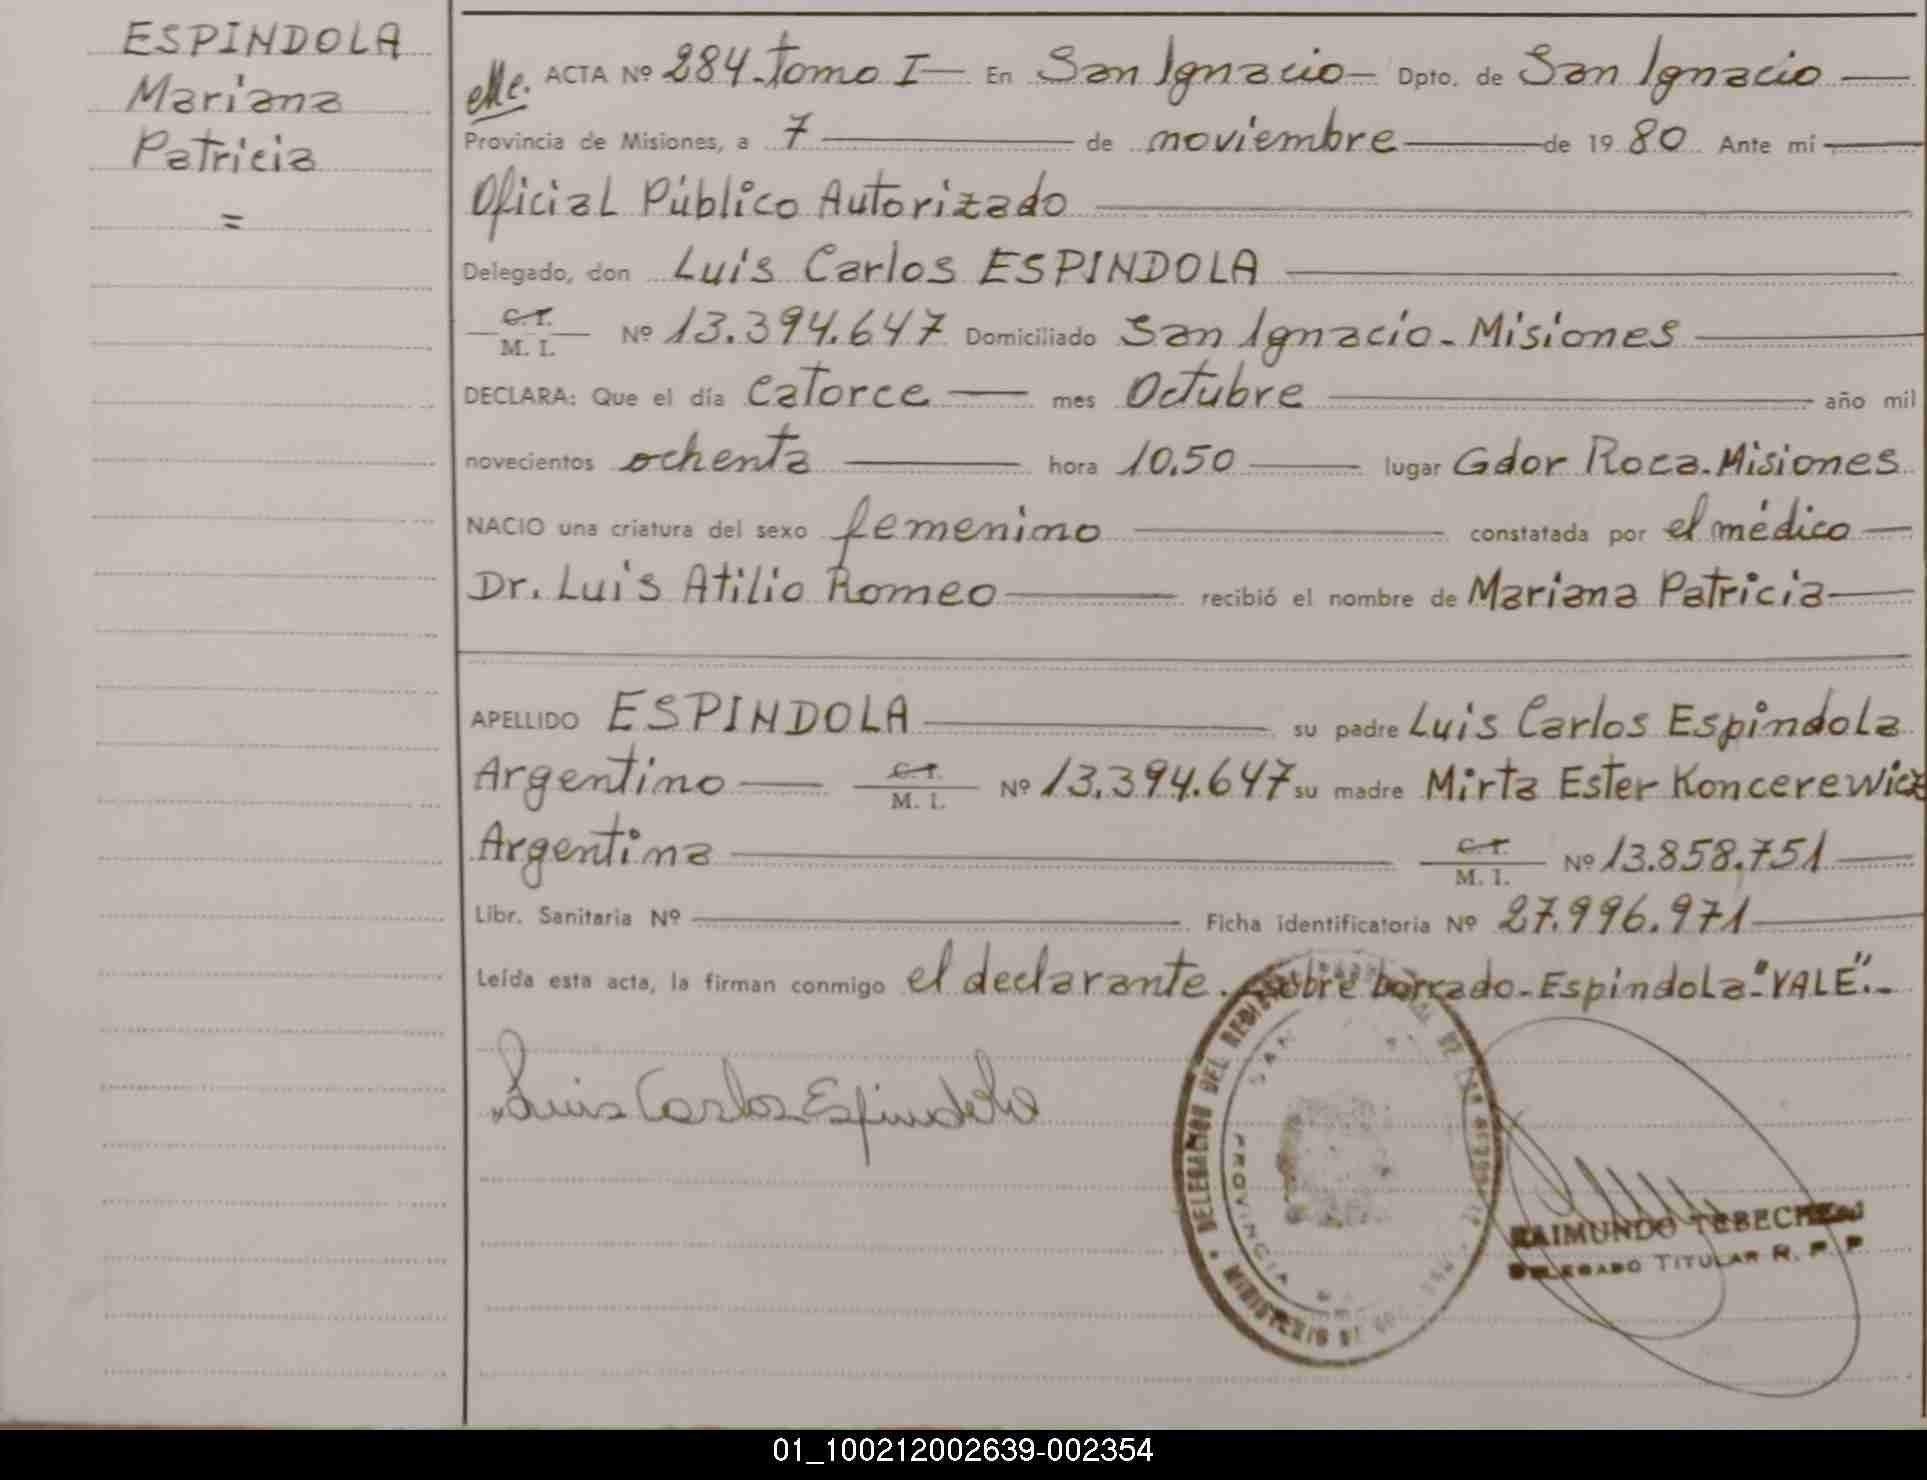 ESPINDOLA
Mariana
Patricia
=
ACTA Nº 284-Tomo I— En San Ignacio— Dpto. de San Ignacio —
Provincia de Misiones, a 7 — de noviembre — de 1980 Ante mi —
Oficial Público Autorizado —
Delegado, don Luis Carlos ESPINDOLA —
C.I.
M. I. Nº 13.394.647 Domiciliado San Ignacio-Misiones —
DECLARA: Que el día Catorce — mes Octubre — año mil
novecientos ochenta — hora 10.50 — lugar Gdor Roca-Misiones
NACIO una criatura del sexo femenino — constatada por el médico —
Dr. Luis Atilio Romeo — recibió el nombre de Mariana Patricia —
APELLIDO ESPINDOLA — su padre Luis Carlos Espindola
Argentino — C.I. M. I. Nº 13.394.647 su madre Mirta Ester Koncerewicz
Argentina — C.I. M. I. Nº 13.858.751 —
Libr. Sanitaria Nº — Ficha identificatoria Nº 27.996.971 —
Leída esta acta, la firman conmigo el declarante. Sobre borrado-Espindola-"VALE".-
Luis Carlos Espindola
DELEGACION DEL REGISTRO
SAN
PROVINCIA
RAIMUNDO
DELEGADO TITULAR R. P. P.
01_100212002639-002354